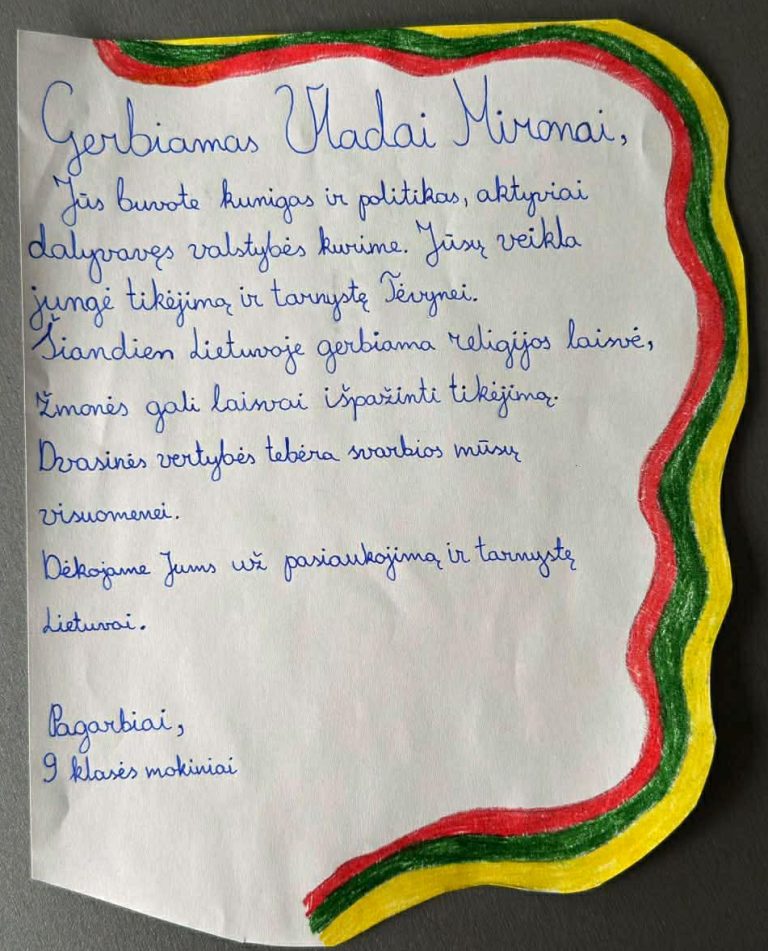 Gerbiamas Vladai Mironai,
Jūs buvote kunigas ir politikas, aktyviai
dalyvavęs valstybės kurime. Jūsų veikla
jungė tikėjimą ir tarnystę Tėvynei.
Šiandien Lietuvoje gerbiama religijos laisvė,
žmonės gali laisvai išpažinti tikėjimą.
Dvasinės vertybės tebėra svarbios mūsų
visuomenei.
Dėkojame Jums už pasiaukojimą ir tarnystę
Lietuvai.
Pagarbiai,
9 klasės mokiniai